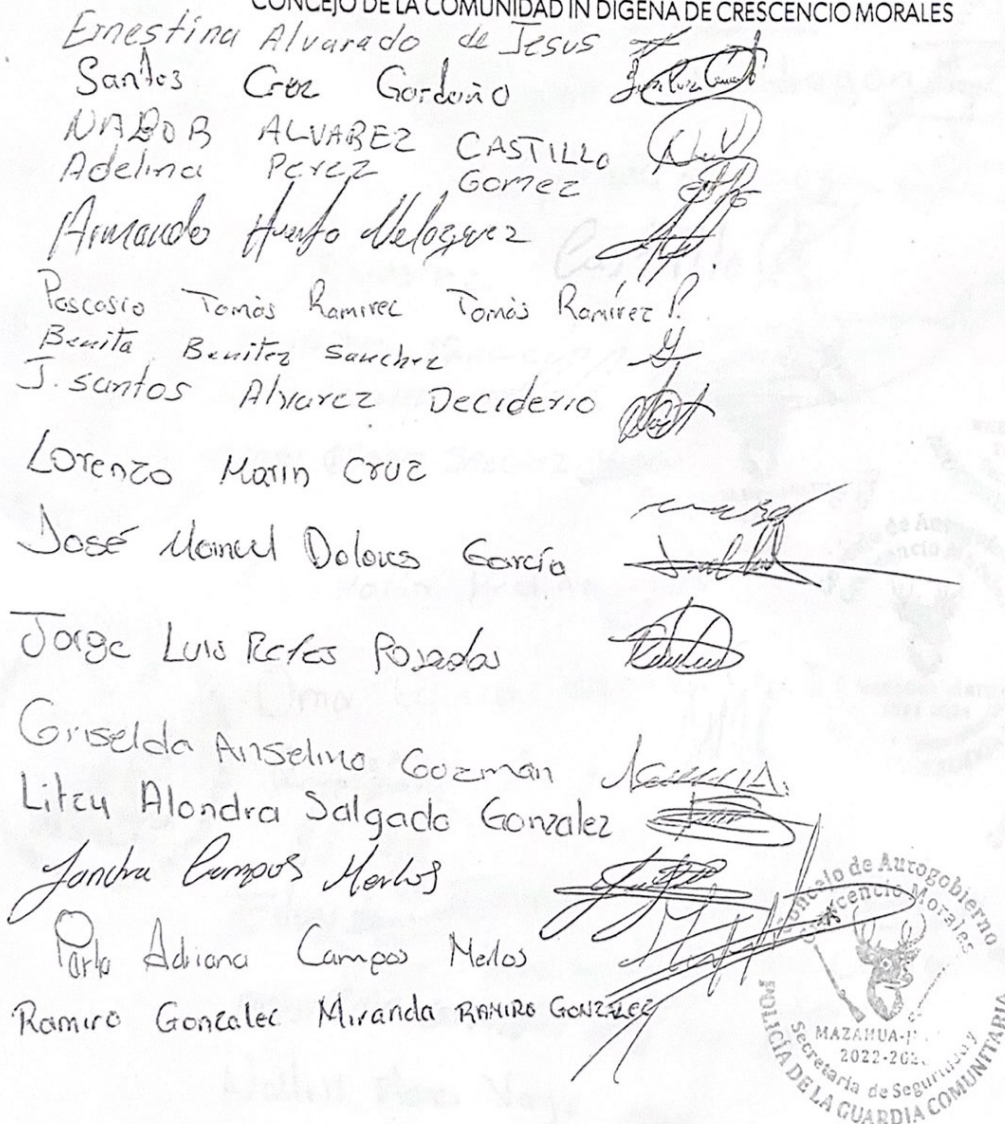 CONCEJO DE LA COMUNIDAD IN DIGENA DE CRESCENCIO MORALES
Ernestina Alvarado de Jesus
Santos Cruz Garduño
NABOR ALVAREZ CASTILLO
Adelina Perez Gomez
Armando Huerfo Velazquez
Pascasio Tomás Ramirec Tomás Ramírez P.
Benita Benitez Sanchez
J. santos Alvarez Deciderio
Lorenzo Marin Cruz
José Manuel Dolores García
Jorge Luis Reyes Posadas
Griselda Anselmo Guzmán
Litzy Alondra Salgado Gonzalez
Sandra Campos Merlos
Parla Adriana Campos Merlos
Ramiro Gonzalec Miranda RAMIRO GONZALEZ
Concejo de Autogobierno
Crescencio Morales
MAZAHUA
2022-202
Secretaría de Seguridad y
POLICÍA DE LA GUARDIA COMUNITARIA